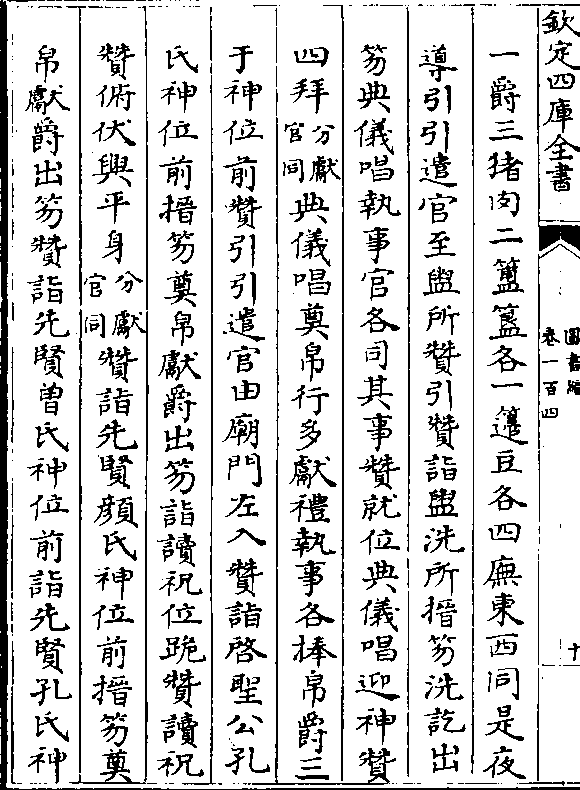 欽定四庫全書
圖書編
卷一百四
十
一爵三猪肉二簠簋各一籩豆各四廡東西同是夜
導引引遣官至盥所贊引贊詣盥洗所搢笏洗訖出
笏典儀唱執事官各司其事贊就位典儀唱迎神贊
四拜分獻官同典儀唱奠帛行多獻禮執事各捧帛爵三
于神位前贊引引遣官由廟門左入贊詣啓聖公孔
氏神位前搢笏奠帛獻爵出笏詣讀祝位跪贊讀祝
贊俯伏興平身分獻官同贊詣先賢顔氏神位前搢笏奠
帛獻爵出笏贊詣先賢曽氏神位前詣先賢孔氏神